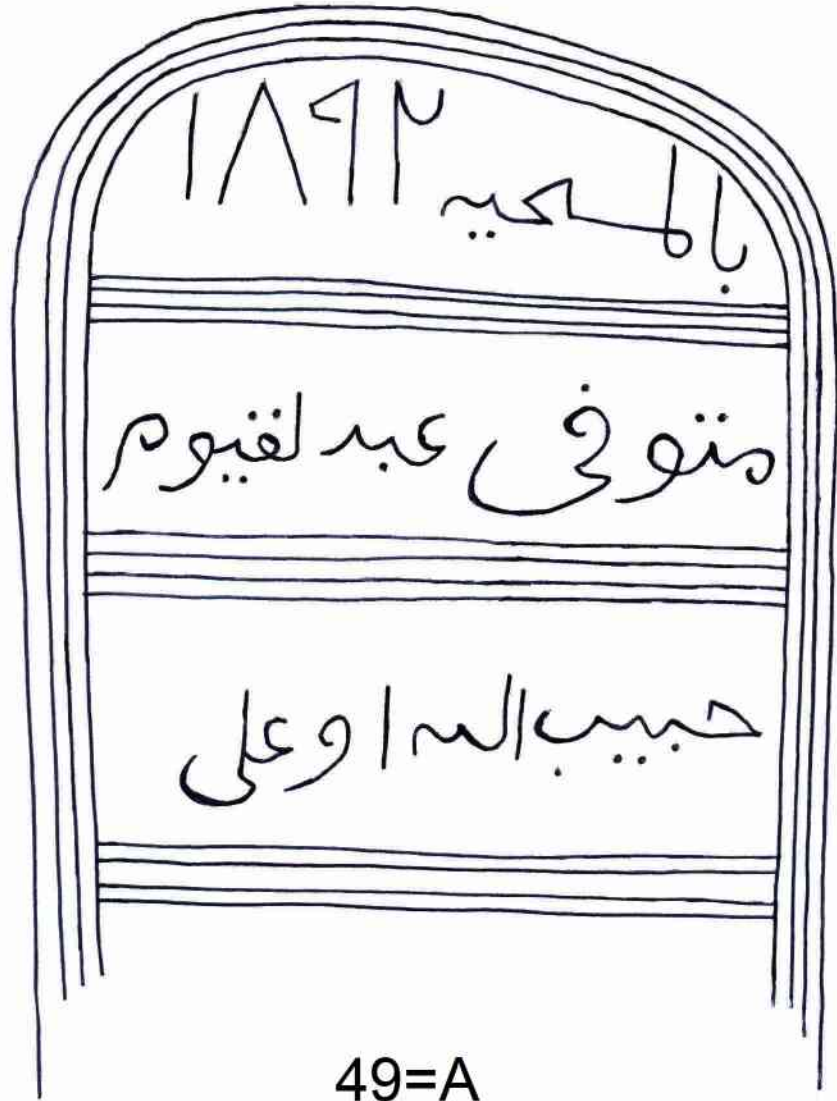 بالمسحيه ١٨٩٢
متوفى عبد لقيوم
حبيب الله اوعلى
49=A